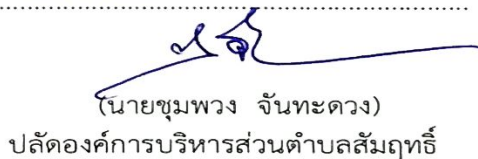 (นายชุมพวง จันทะดวง)
ปลัดองค์การบริหารส่วนตำบลสัมฤทธิ์